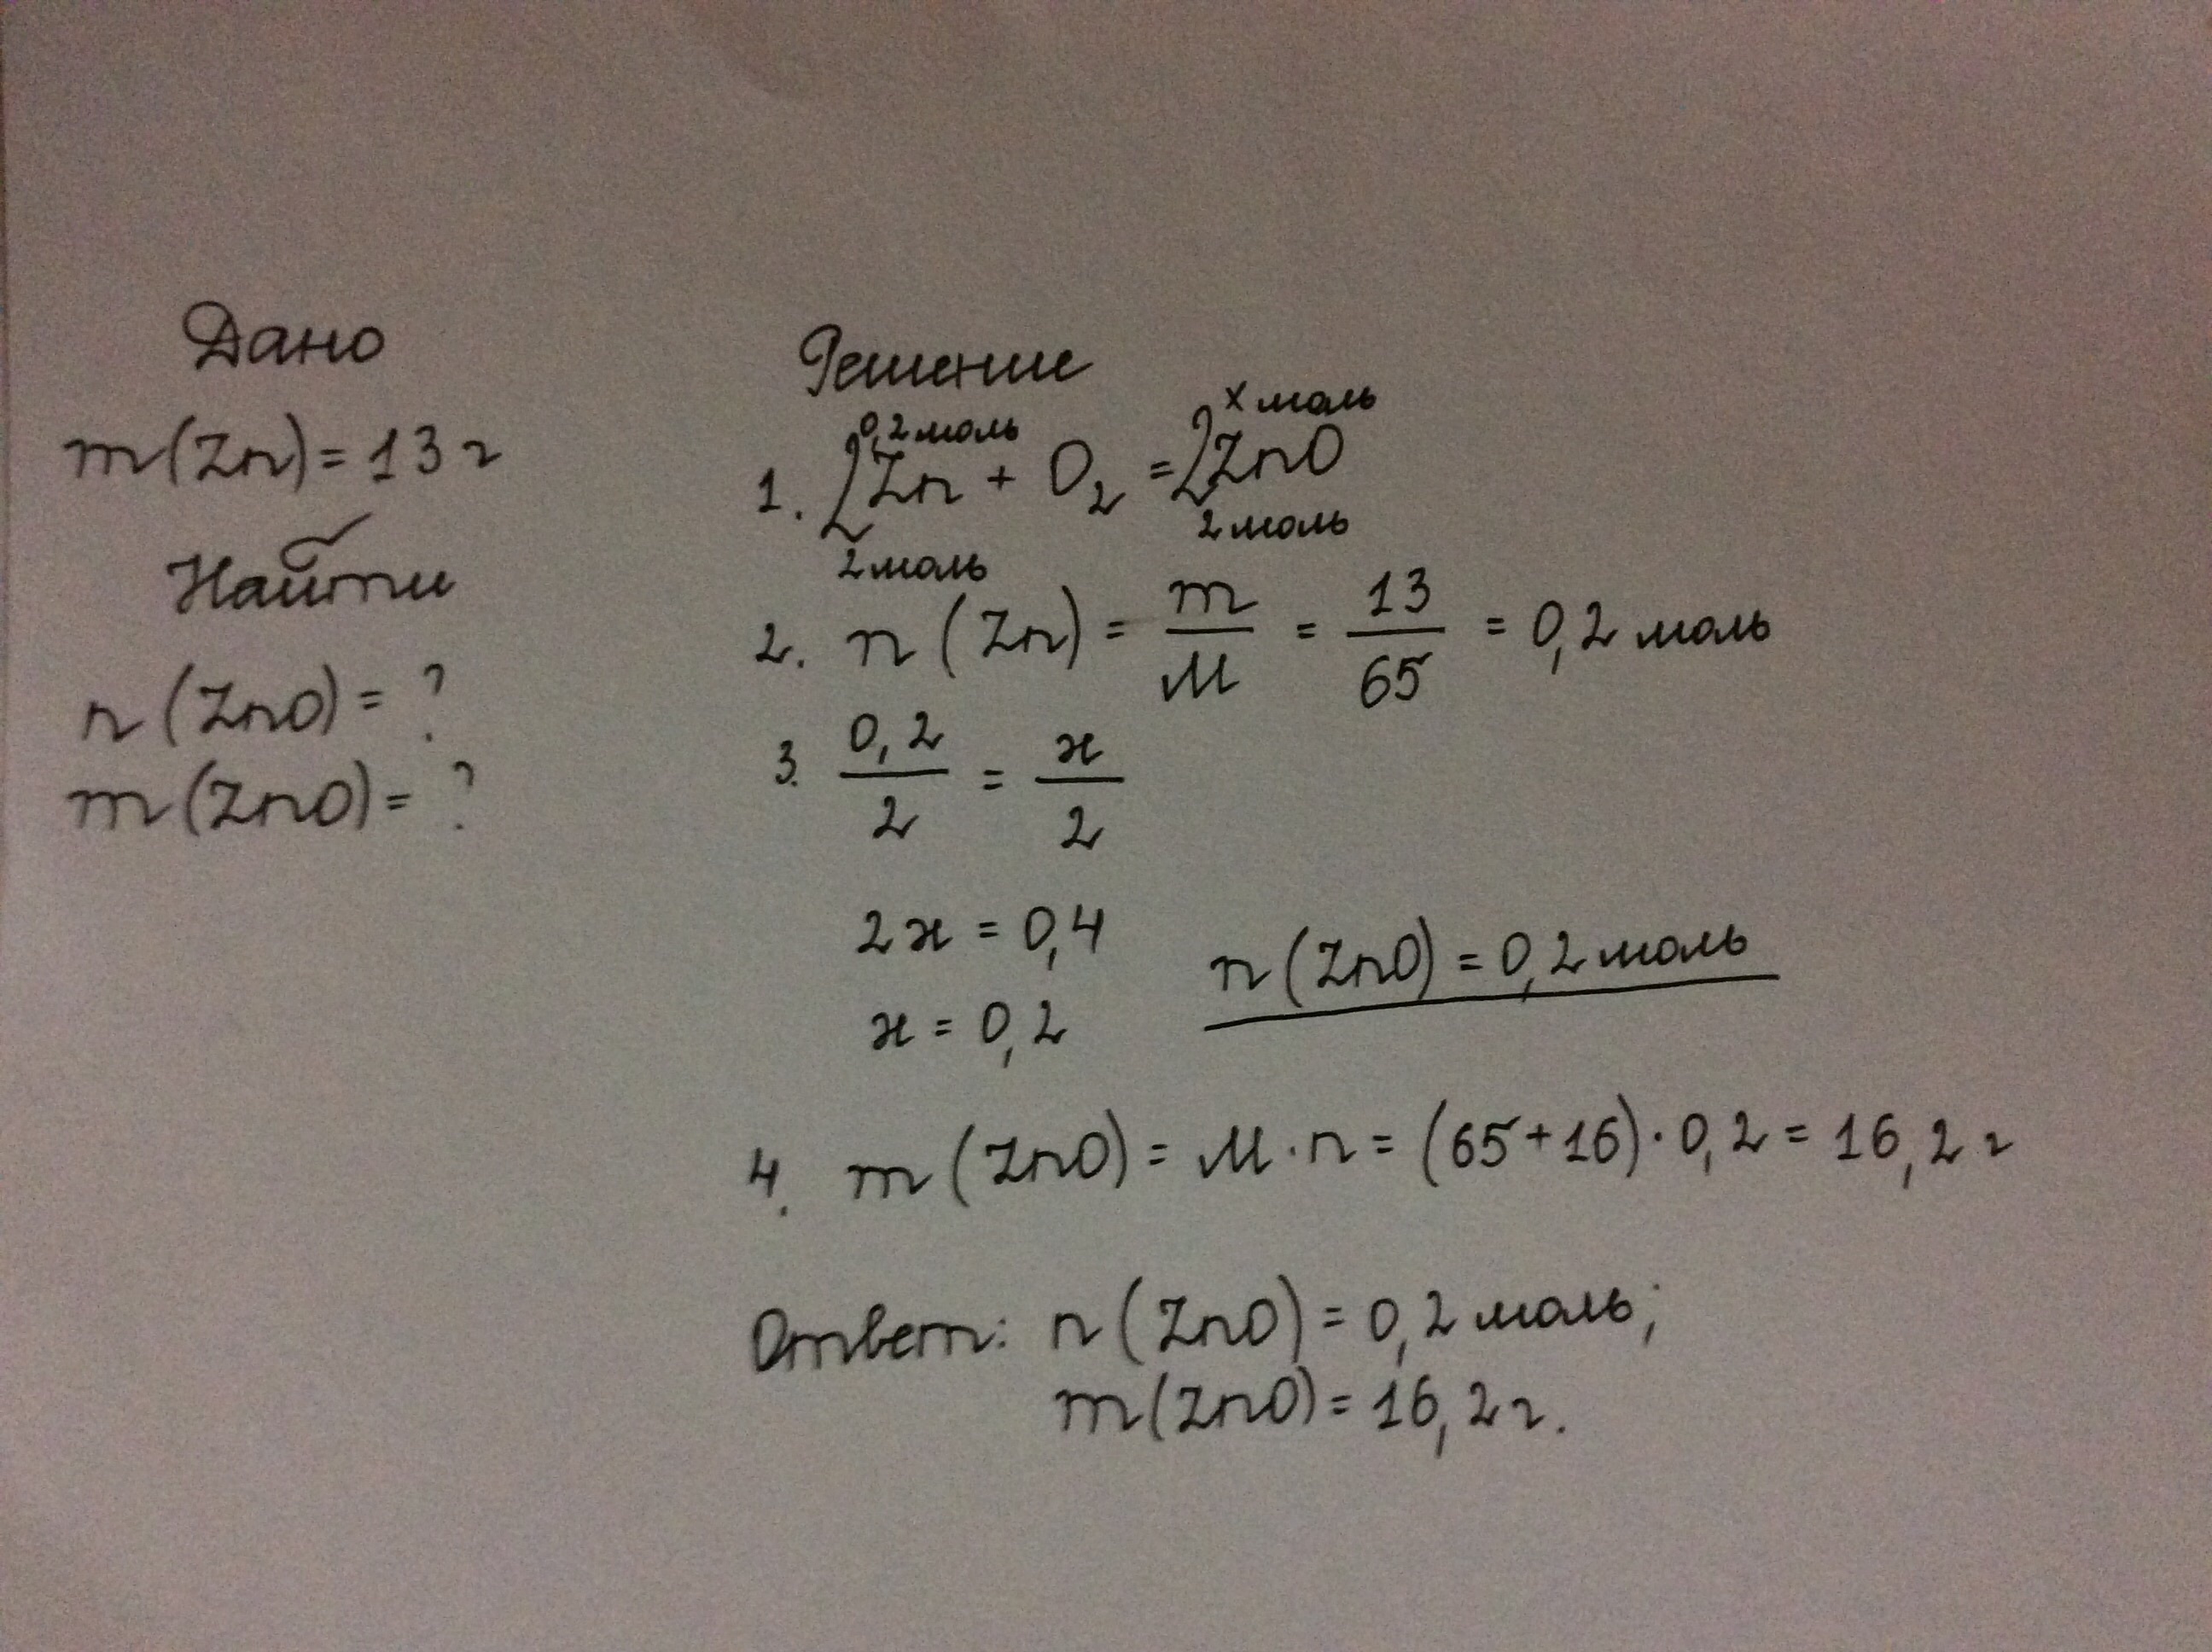 Дано
m(Zn)=13 г
Найти
n(ZnO)= ?
m(ZnO)= ?
Решение
0,2 моль x моль
1. 2Zn + O₂ = 2ZnO
2 моль 2 моль
2. n(Zn) = m/M = 13/65 = 0,2 моль
3. 0,2/2 = x/2
2x = 0,4
x = 0,2 n(ZnO) = 0,2 моль
4. m(ZnO) = M·n = (65+16)·0,2 = 16,2 г
Ответ: n(ZnO) = 0,2 моль;
m(ZnO)= 16,2 г.